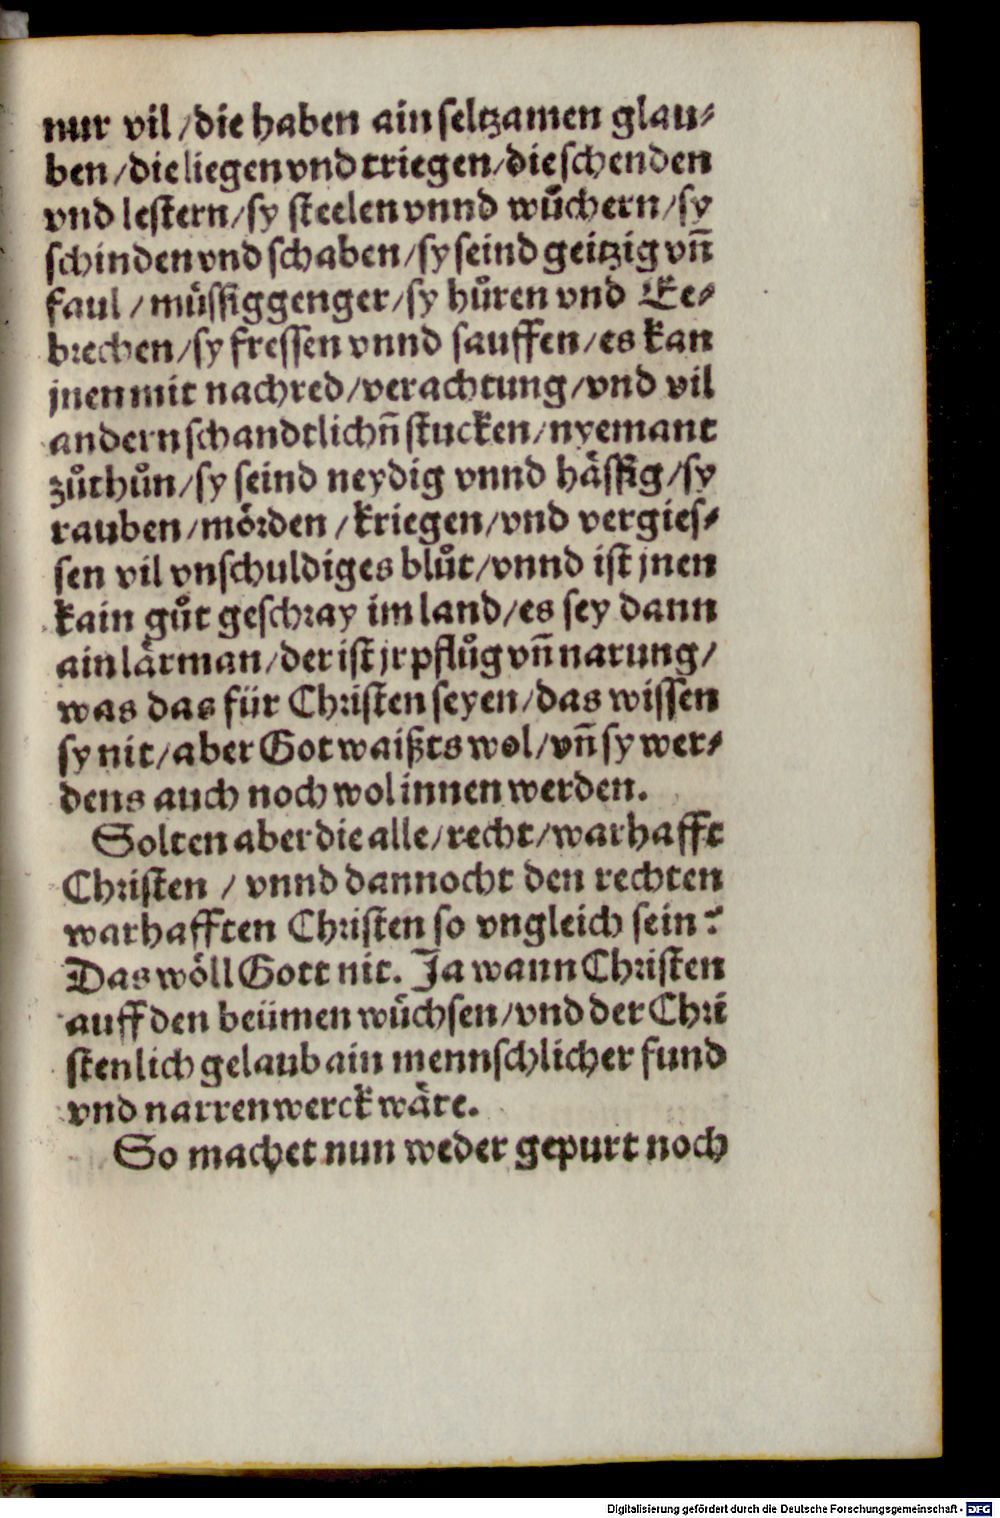 nur vil / die haben ain seltzamen glau⸗
ben / die liegen vnd triegen / die schenden
vnd lestern / sy steelen vnnd wůchern / sy
schinden vnd schaben / sy seind geitzig vñ
faul / müssiggenger / sy hůren vnd Ee⸗
brechen / sy fressen vnnd sauffen / es kan
jnen mit nachred / verachtung / vnd vil
andern schandtlichñ stucken / nyemant
zůthůn / sy seind neydig vnnd hässig / sy
rauben / mörden / kriegen / vnd vergies⸗
sen vil vnschuldiges blůt / vnnd ist jnen
kain gůt geschray im land / es sey dann
ain lärman / der ist jr pflůg vñ narung /
was das für Christen seyen / das wissen
sy nit / aber Got waißts wol / vñ sy wer⸗
dens auch noch wol innen werden.
Solten aber die alle / recht / warhafft
Christen / vnnd dannocht den rechten
warhafften Christen so vngleich sein?
Das wöll Gott nit. Ja wann Christen
auff den beümen wůchsen / vnd der Chri
stenlich gelaub ain mennschlicher fund
vnd narrenwerck wäre.
So machet nun weder gepurt noch
Digitalisierung gefördert durch die Deutsche Forschungsgemeinschaft - DFG